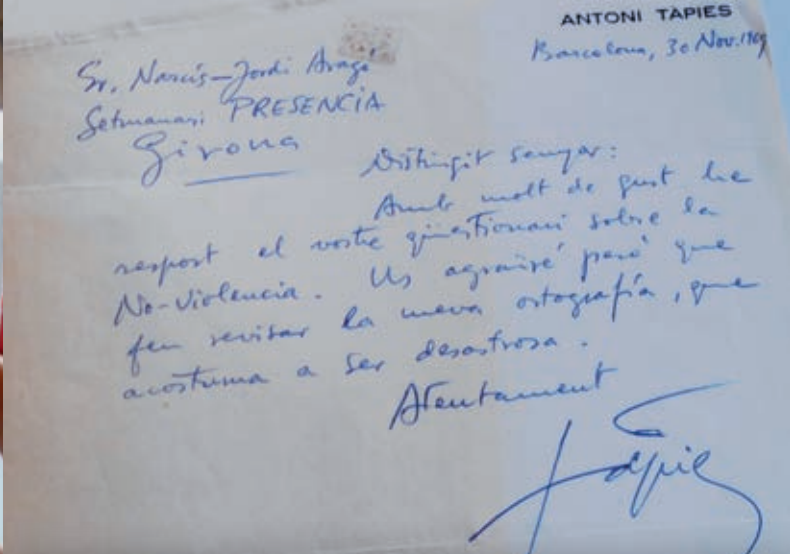 ANTONI TÀPIES
Barcelona, 30 Nov. 1969
Sr. Narcís-Jordi Aragó
Setmanari PRESENCIA
Girona
Distingit senyor:
Amb molt de gust he
respost el vostre qüestionari sobre la
No-Violencia. Us agrairé però que
feu revisar la meva ortografía, que
acostuma a ser desastrosa.
Atentament
Tàpies